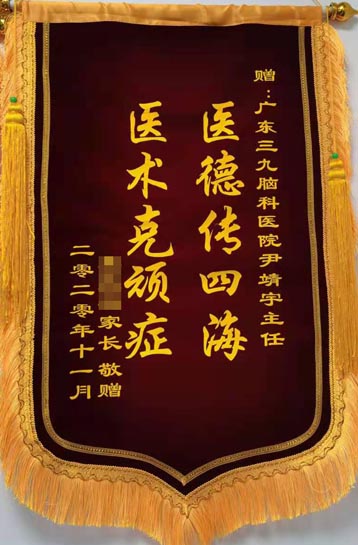 赠：广东三九脑科医院尹靖宇主任
医德传四海
医术克顽症
家长敬赠
二零二零年十一月